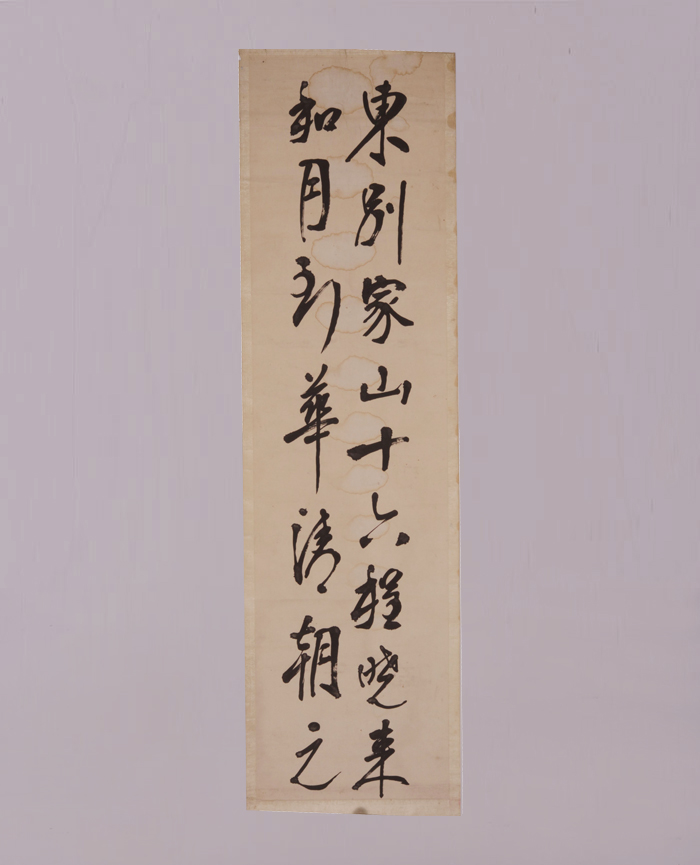 東別家山十六程曉来
和月到華清朝元